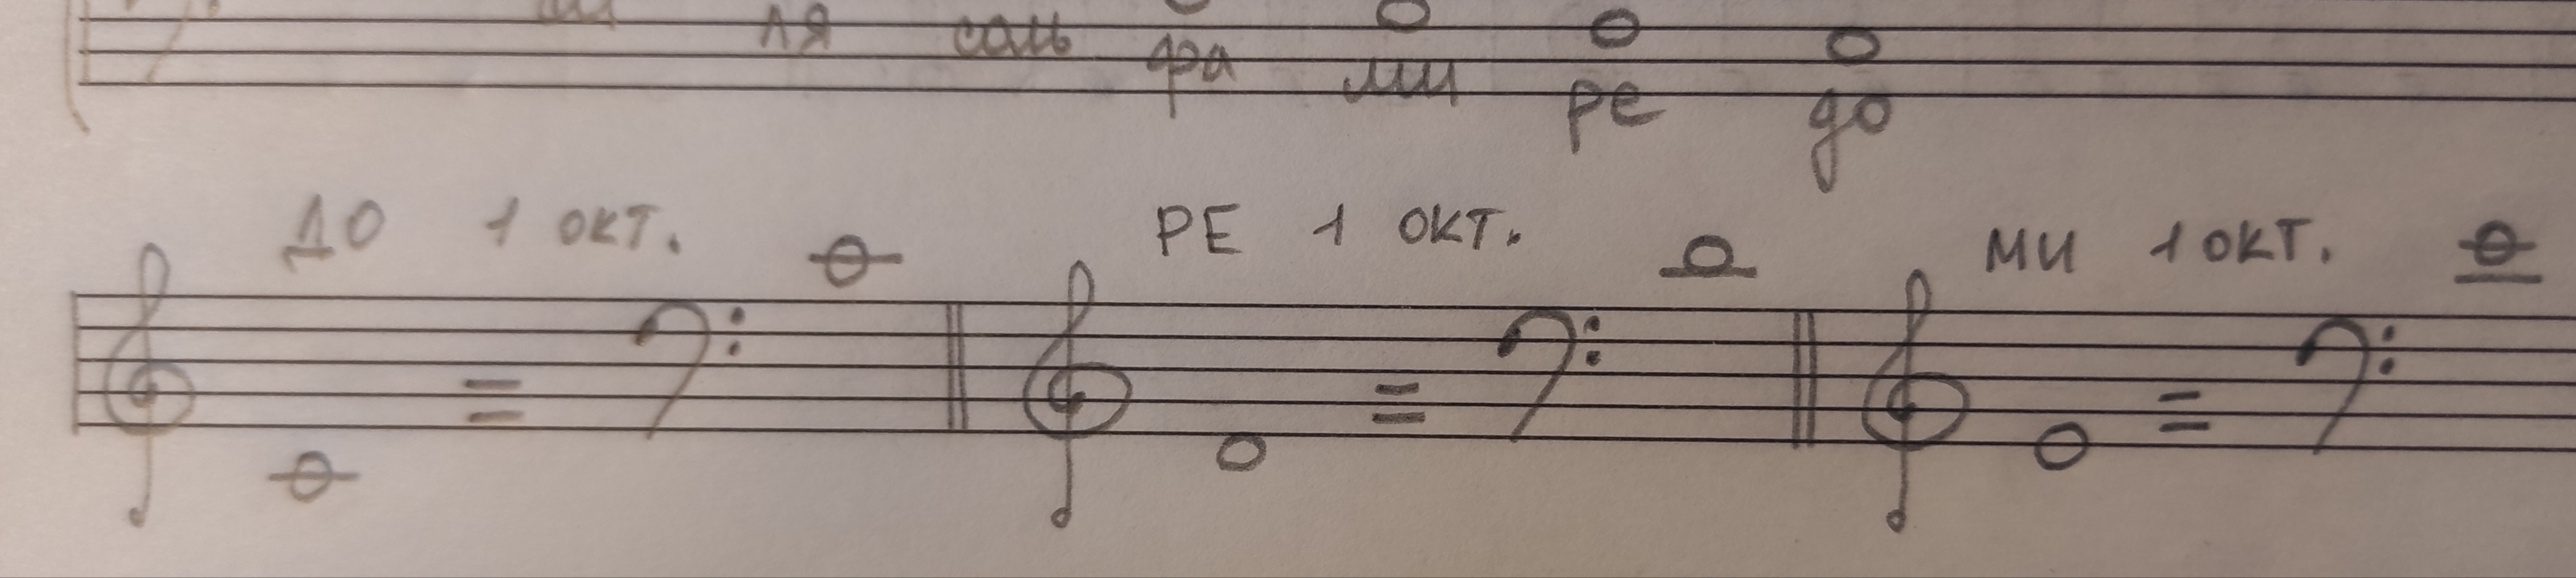 ля соль фа ми ре до
ДО 1 ОКТ. РЕ 1 ОКТ. МИ 1 ОКТ.
= = =